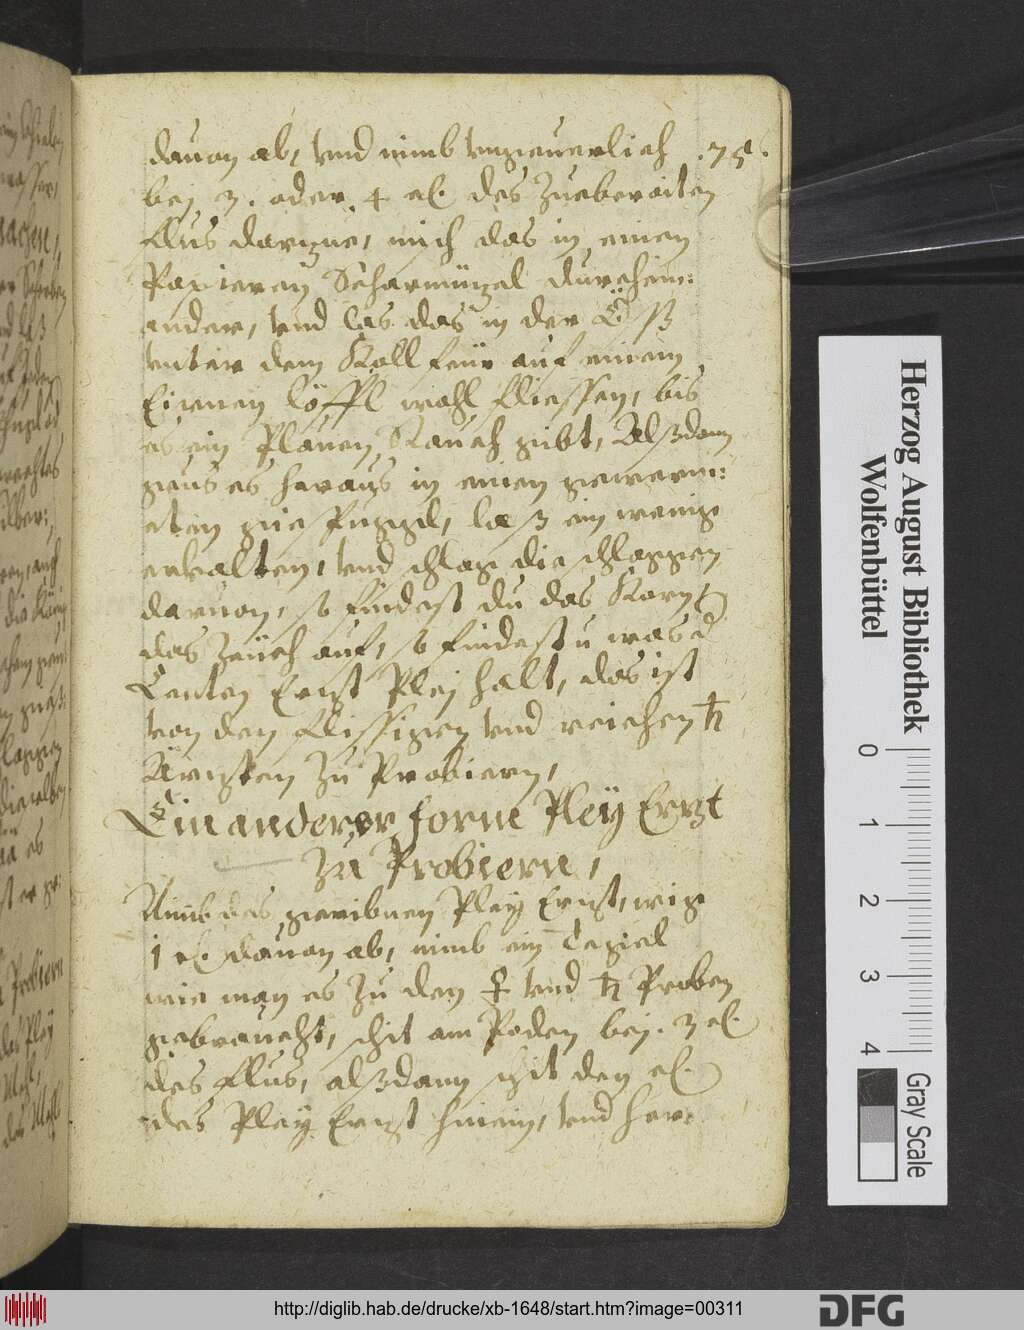 dauon ab, vnd nimb vngeuerlich .75.
bej 3. oder 4 des Zueberaiten
flus dartzue, misch das in einen
Papieren Scharmützel durchein:
ander, vnd las das in der Eß
vnter dem Koll feür auf einem
Eisnen löffl wohl fliessen, bis
es ein Plauen Rauch gibt, Alßdann
geus es heraus in einen gewerm:
eten gies Puggl, laß ein wenig
erkalten, vnd schlag die schlaggen
daruon, so findest du das Korn,
das Zeüch auf, so findestu was d
Centen Ertzt Plej halt, das ist
von den flissigen vnd reichen ♄
Ärtzten zu Probiern,
Ein anderer form Pley Ertzt
zu Probiern,
Nimb das geribnen Pley Ertzt, wig
1 dauon ab, nimb ein Tegiel
wie man es zu den ♀ vnd ♄ Proben
gebraucht, schit am Poden bej. 3
des flus, alßdann schit den
des Pley Ertzt hinein, vnd her:
Herzog August Bibliothek
Wolfenbüttel
0 1 2 3 4
Gray Scale
http://diglib.hab.de/drucke/xb-1648/start.htm?image=00311
DFG